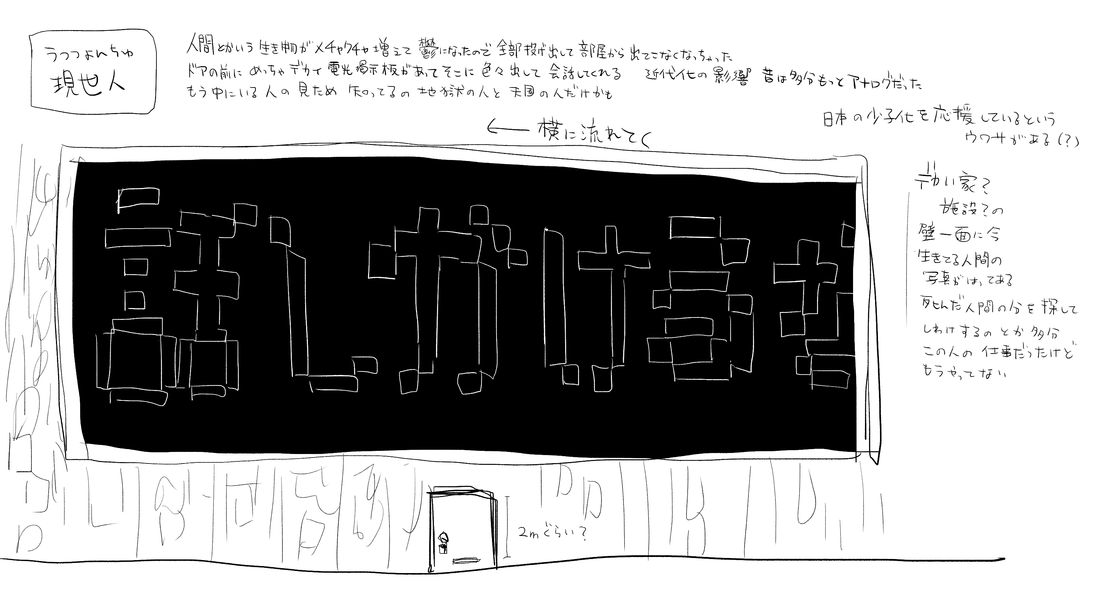 うつつよんちゅ
現世人
人間とかいう生き物がメチャクチャ増えて鬱になったので全部投げ出して部屋から出てこなくなっちゃった
ドアの前にめっちゃデカイ電光掲示板があってそこに色々出して会話してくれる 近代化の影響 昔は多分もっとアナログだった
もう中にいる人の見ため知ってるの地獄の人と天国の人だけかも
日本の少子化を応援しているという
ウワサがある(?)
← 横に流れてく
デカい家?
施設?の
壁一面に今
生きてる人間の
写真がはってある
死んだ人間の分を探して
しわけするのとか多分
この人の仕事だったけど
もうやってない
話しかける
2mぐらい?